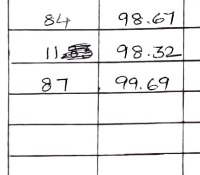 84 98.67
11 98.32
87 99.69